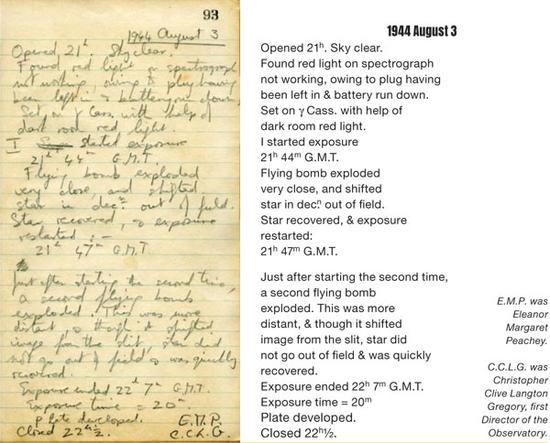 93
1944 August 3
Opened 21h. Sky clear.
Found red light on spectrograph
not working, owing to plug having
been left in & battery run down.
Set on γ Cass. with help of
dark room red light.
I started exposure
21h 44m G.M.T.
Flying bomb exploded
very close, and shifted
star in decn. out of field.
Star recovered, & exposure
restarted :-
21h 47m G.M.T.
Just after starting the second time,
a second flying bomb
exploded. This was more
distant, & though it shifted
image from the slit, star did
not go out of field & was quickly
recovered.
Exposure ended 22h 7m G.M.T.
Exposure time = 20m
Plate developed.
E.M.P.
Closed 22h½.
C.C.L.G.
1944 August 3
Opened 21h. Sky clear.
Found red light on spectrograph
not working, owing to plug having
been left in & battery run down.
Set on γ Cass. with help of
dark room red light.
I started exposure
21h 44m G.M.T.
Flying bomb exploded
very close, and shifted
star in decn. out of field.
Star recovered, & exposure
restarted:
21h 47m G.M.T.
Just after starting the second time,
a second flying bomb
exploded. This was more
distant, & though it shifted
image from the slit, star did
not go out of field & was quickly
recovered.
Exposure ended 22h 7m G.M.T.
Exposure time = 20m
Plate developed.
Closed 22h½.
E.M.P. was
Eleanor
Margaret
Peachey.
C.C.L.G. was
Christopher
Clive Langton
Gregory, first
Director of the
Observatory.